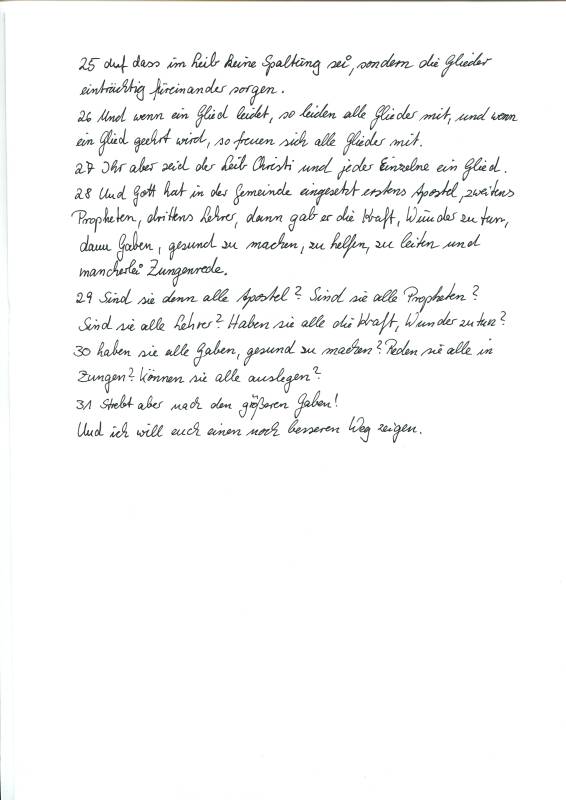 25 auf dass im Leib keine Spaltung sei, sondern die Glieder
einträchtig füreinander sorgen.
26 Und wenn ein Glied leidet, so leiden alle Glieder mit, und wenn
ein Glied geehrt wird, so freuen sich alle Glieder mit.
27 Ihr aber seid der Leib Christi und jeder Einzelne ein Glied.
28 Und Gott hat in der Gemeinde eingesetzt erstens Apostel, zweitens
Propheten, drittens Lehrer, dann gab er die Kraft, Wunder zu tun,
dann Gaben, gesund zu machen, zu helfen, zu leiten und
mancherlei Zungenrede.
29 Sind sie denn alle Apostel? Sind sie alle Propheten?
Sind sie alle Lehrer? Haben sie alle die Kraft, Wunder zu tun?
30 haben sie alle Gaben, gesund zu machen? Reden sie alle in
Zungen? Können sie alle auslegen?
31 Strebt aber nach den größeren Gaben!
Und ich will euch einen noch besseren Weg zeigen.